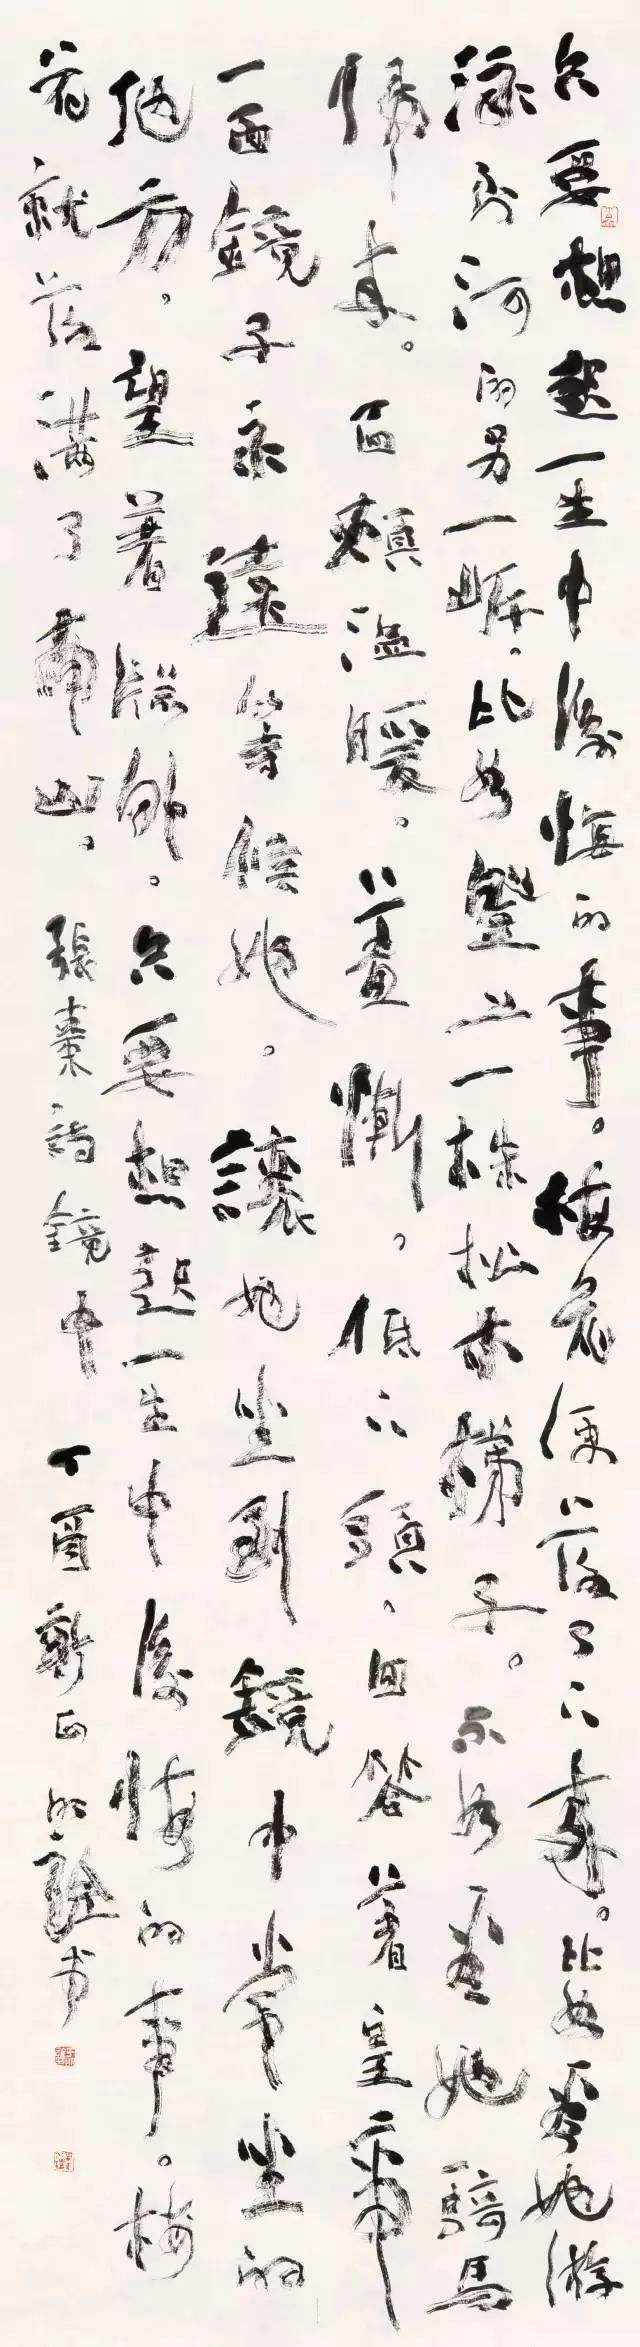 只要想起一生中後悔的事。梅花便落了下來。比如看她游
泳到河的另一岸,比如登上一株松木梯子。不如看她騎馬
歸來。面頰温暖。羞慚。低下頭,回答著皇帝
一面鏡子永遠等候她。讓她坐到鏡中常坐的
地方。望著窗外。只要想起一生中後悔的事。梅
花就落滿了南山。張棗詩鏡中 丁酉新正 書